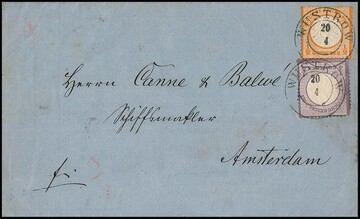 WUSTROW
20
4
WUSTROW
20
4
Herrn Canne & Balwé
Schiffsmakler
Amsterdam
fr.